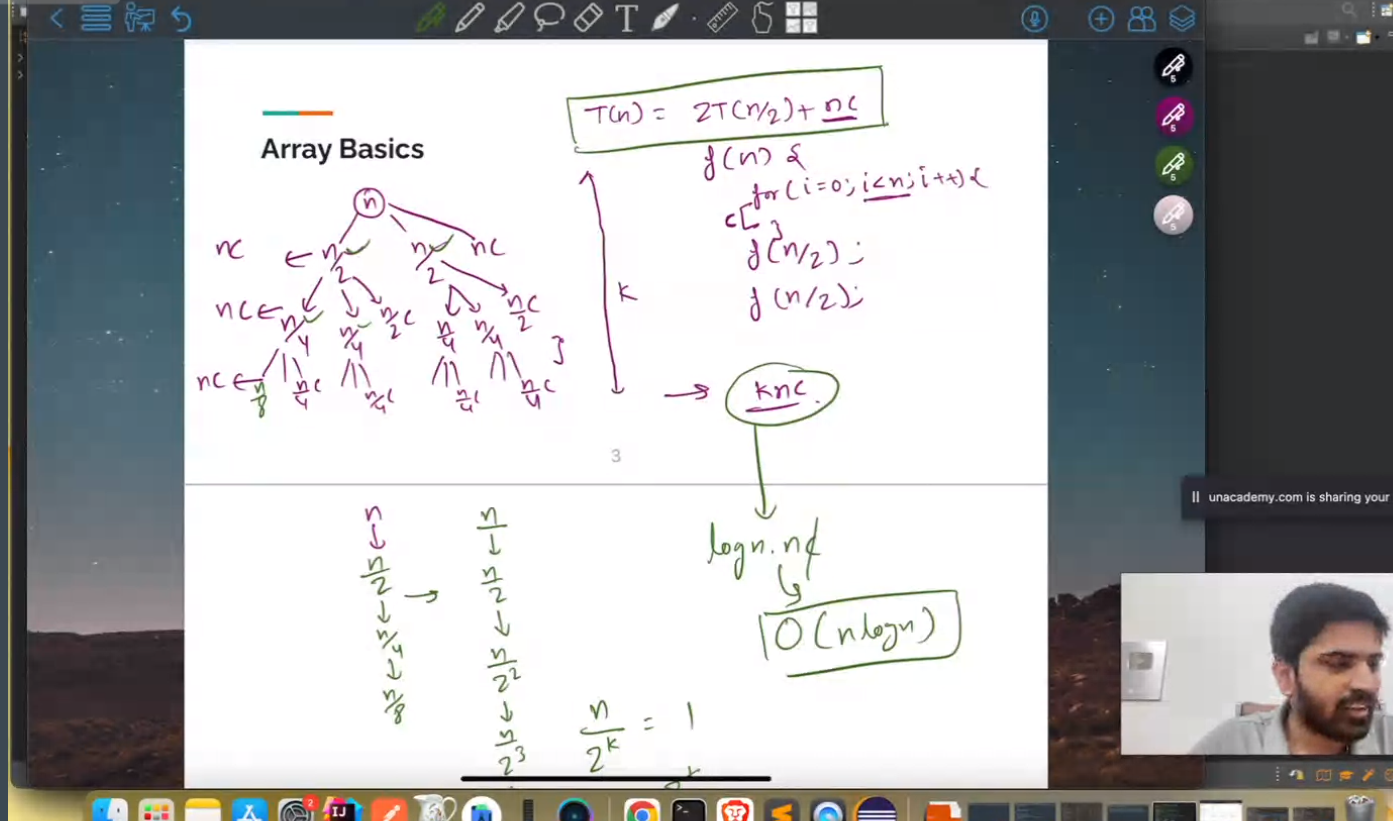 T(n) = 2T(n/2) + nc
Array Basics
f(n) {
for(i=0; i<n; i++) {
c [ }
f(n/2);
f(n/2);
}
n
nc ← n/2 n/2 nc
nc ← n/4 n/4 n/2 c n/4 n/4 nc/2
nc ← n/8 n/4 c n/4 c n/4 c n/4 c
k
→ knc.
3
n
↓
n/2 →
↓
n/4
↓
n/8
n
↓
n/2
↓
n/2²
↓
n/2³
n/2ᵏ = 1
logn.nc
O(nlogn)
T
5
5
5
5
unacademy.com is sharing your
2
IJ